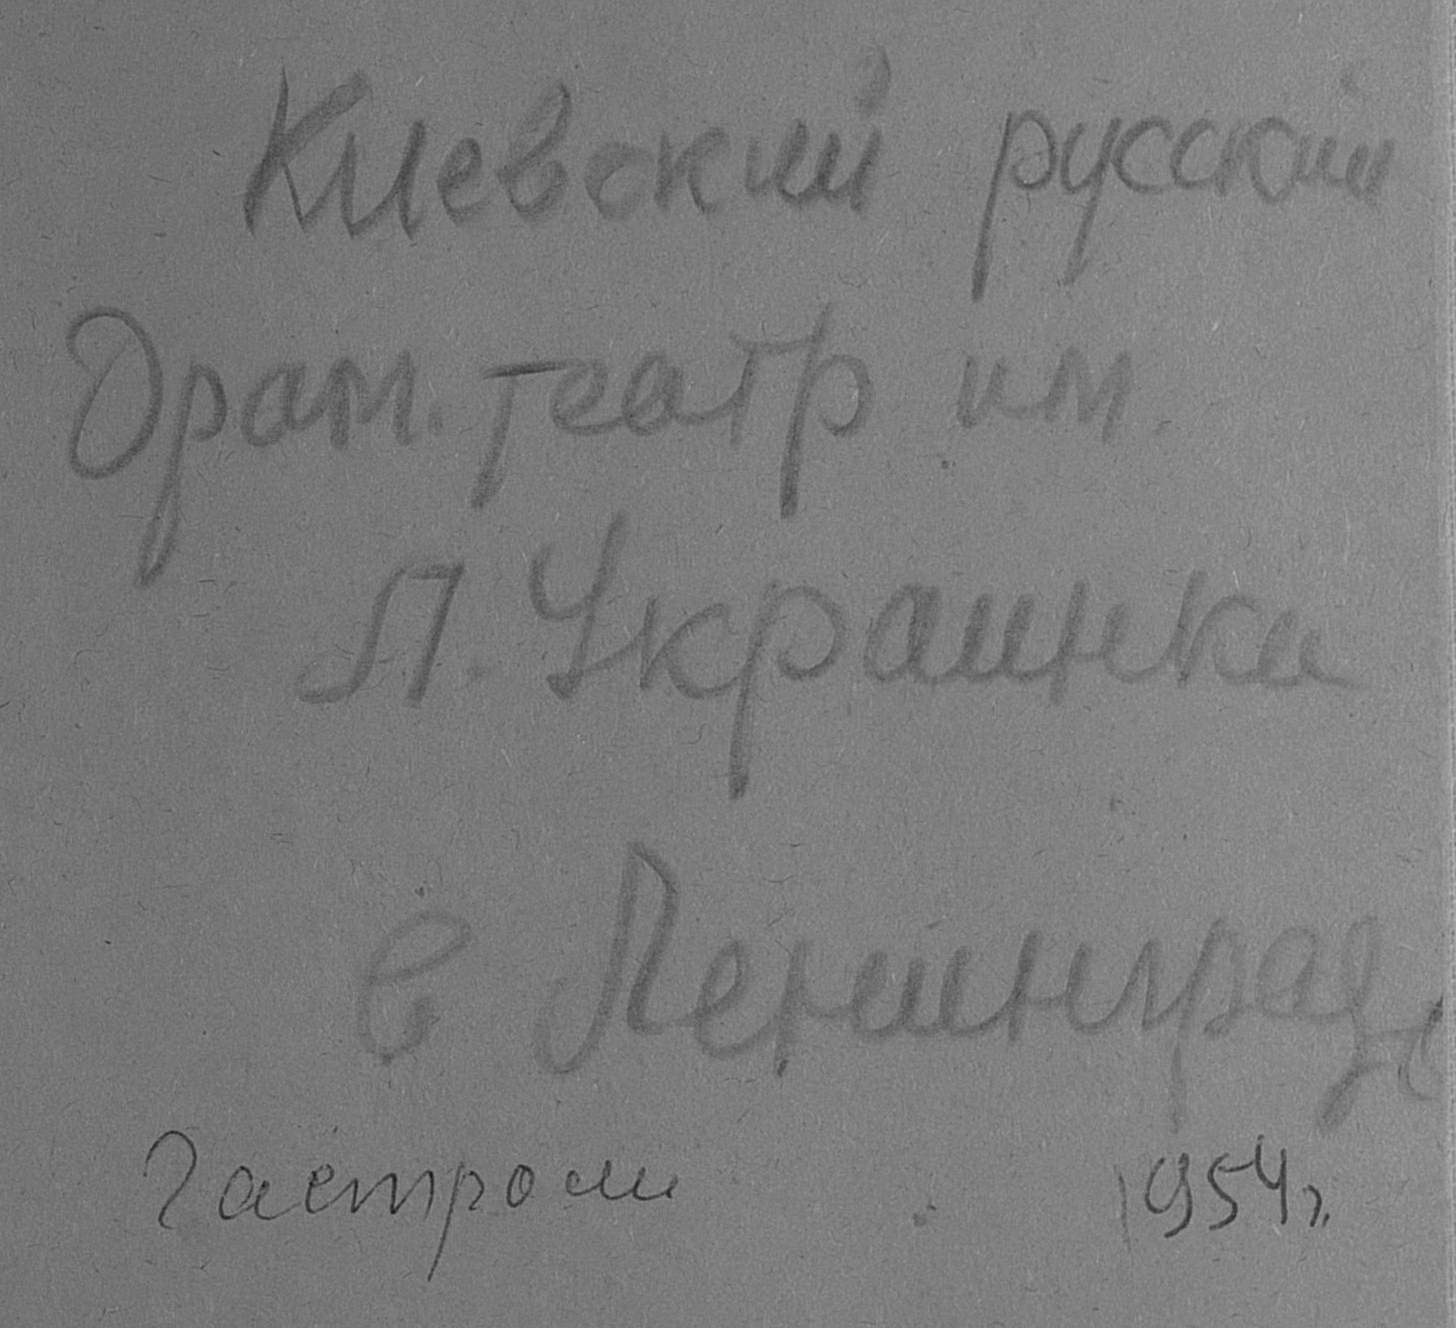 Киевский русский
Драм. театр им.
Л. Украинки
в Ленинграде
Гастроли 1954 г.